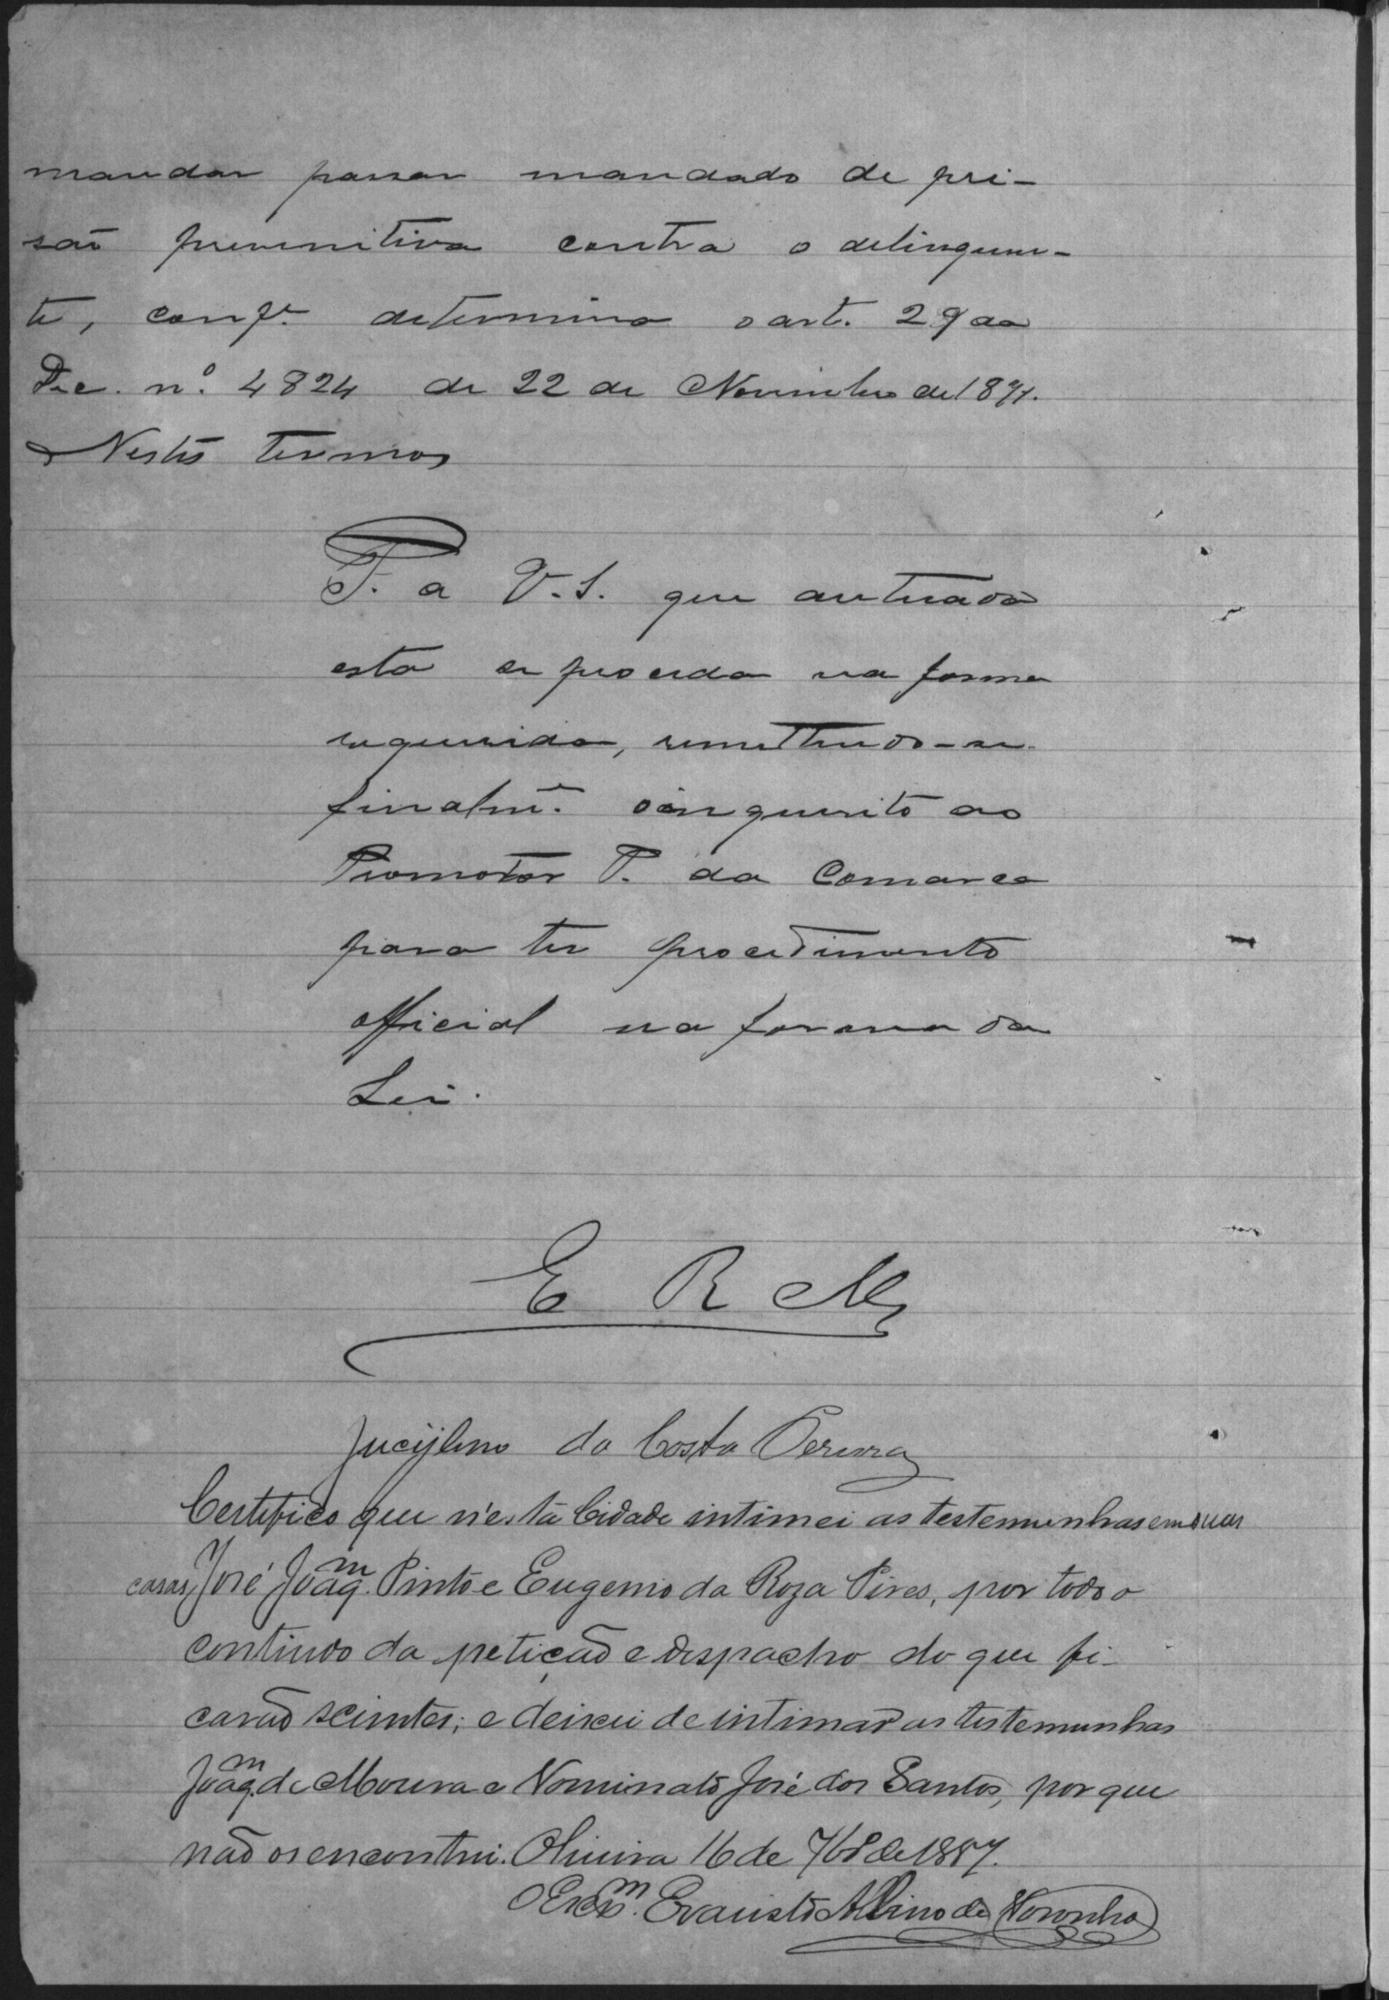 mandar passar mandado de pri-
são preventiva contra o delinquen-
te, conf.e determina o art. 29 do
Dec. nº. 4824 de 22 de Novembro de 1871.
Nestes termos
P. a V. S. que autuada
esta se proceda na forma
requerida, remettendo-se
finalm.e o inquerito ao
Promotor P. da Comarca
para ter procedimento
official na forma da
Lei.
E R M
da Costa Pereira
Certifico que n'esta Cidade intimei as testemunhas em suas
casas, José Joaq.m Pinto e Eugenio da Roza Pires, por todo o
contiudo da petição e despacho do que fi-
carão scientes; e deixei de intimar as testemunhas
Joaq.m de Moura e Nominato José dos Santos, por que
não os encontrei. Oliveira 16 de 7br.o de 1887.
O Escr.m Evaristo Albino de Noronha